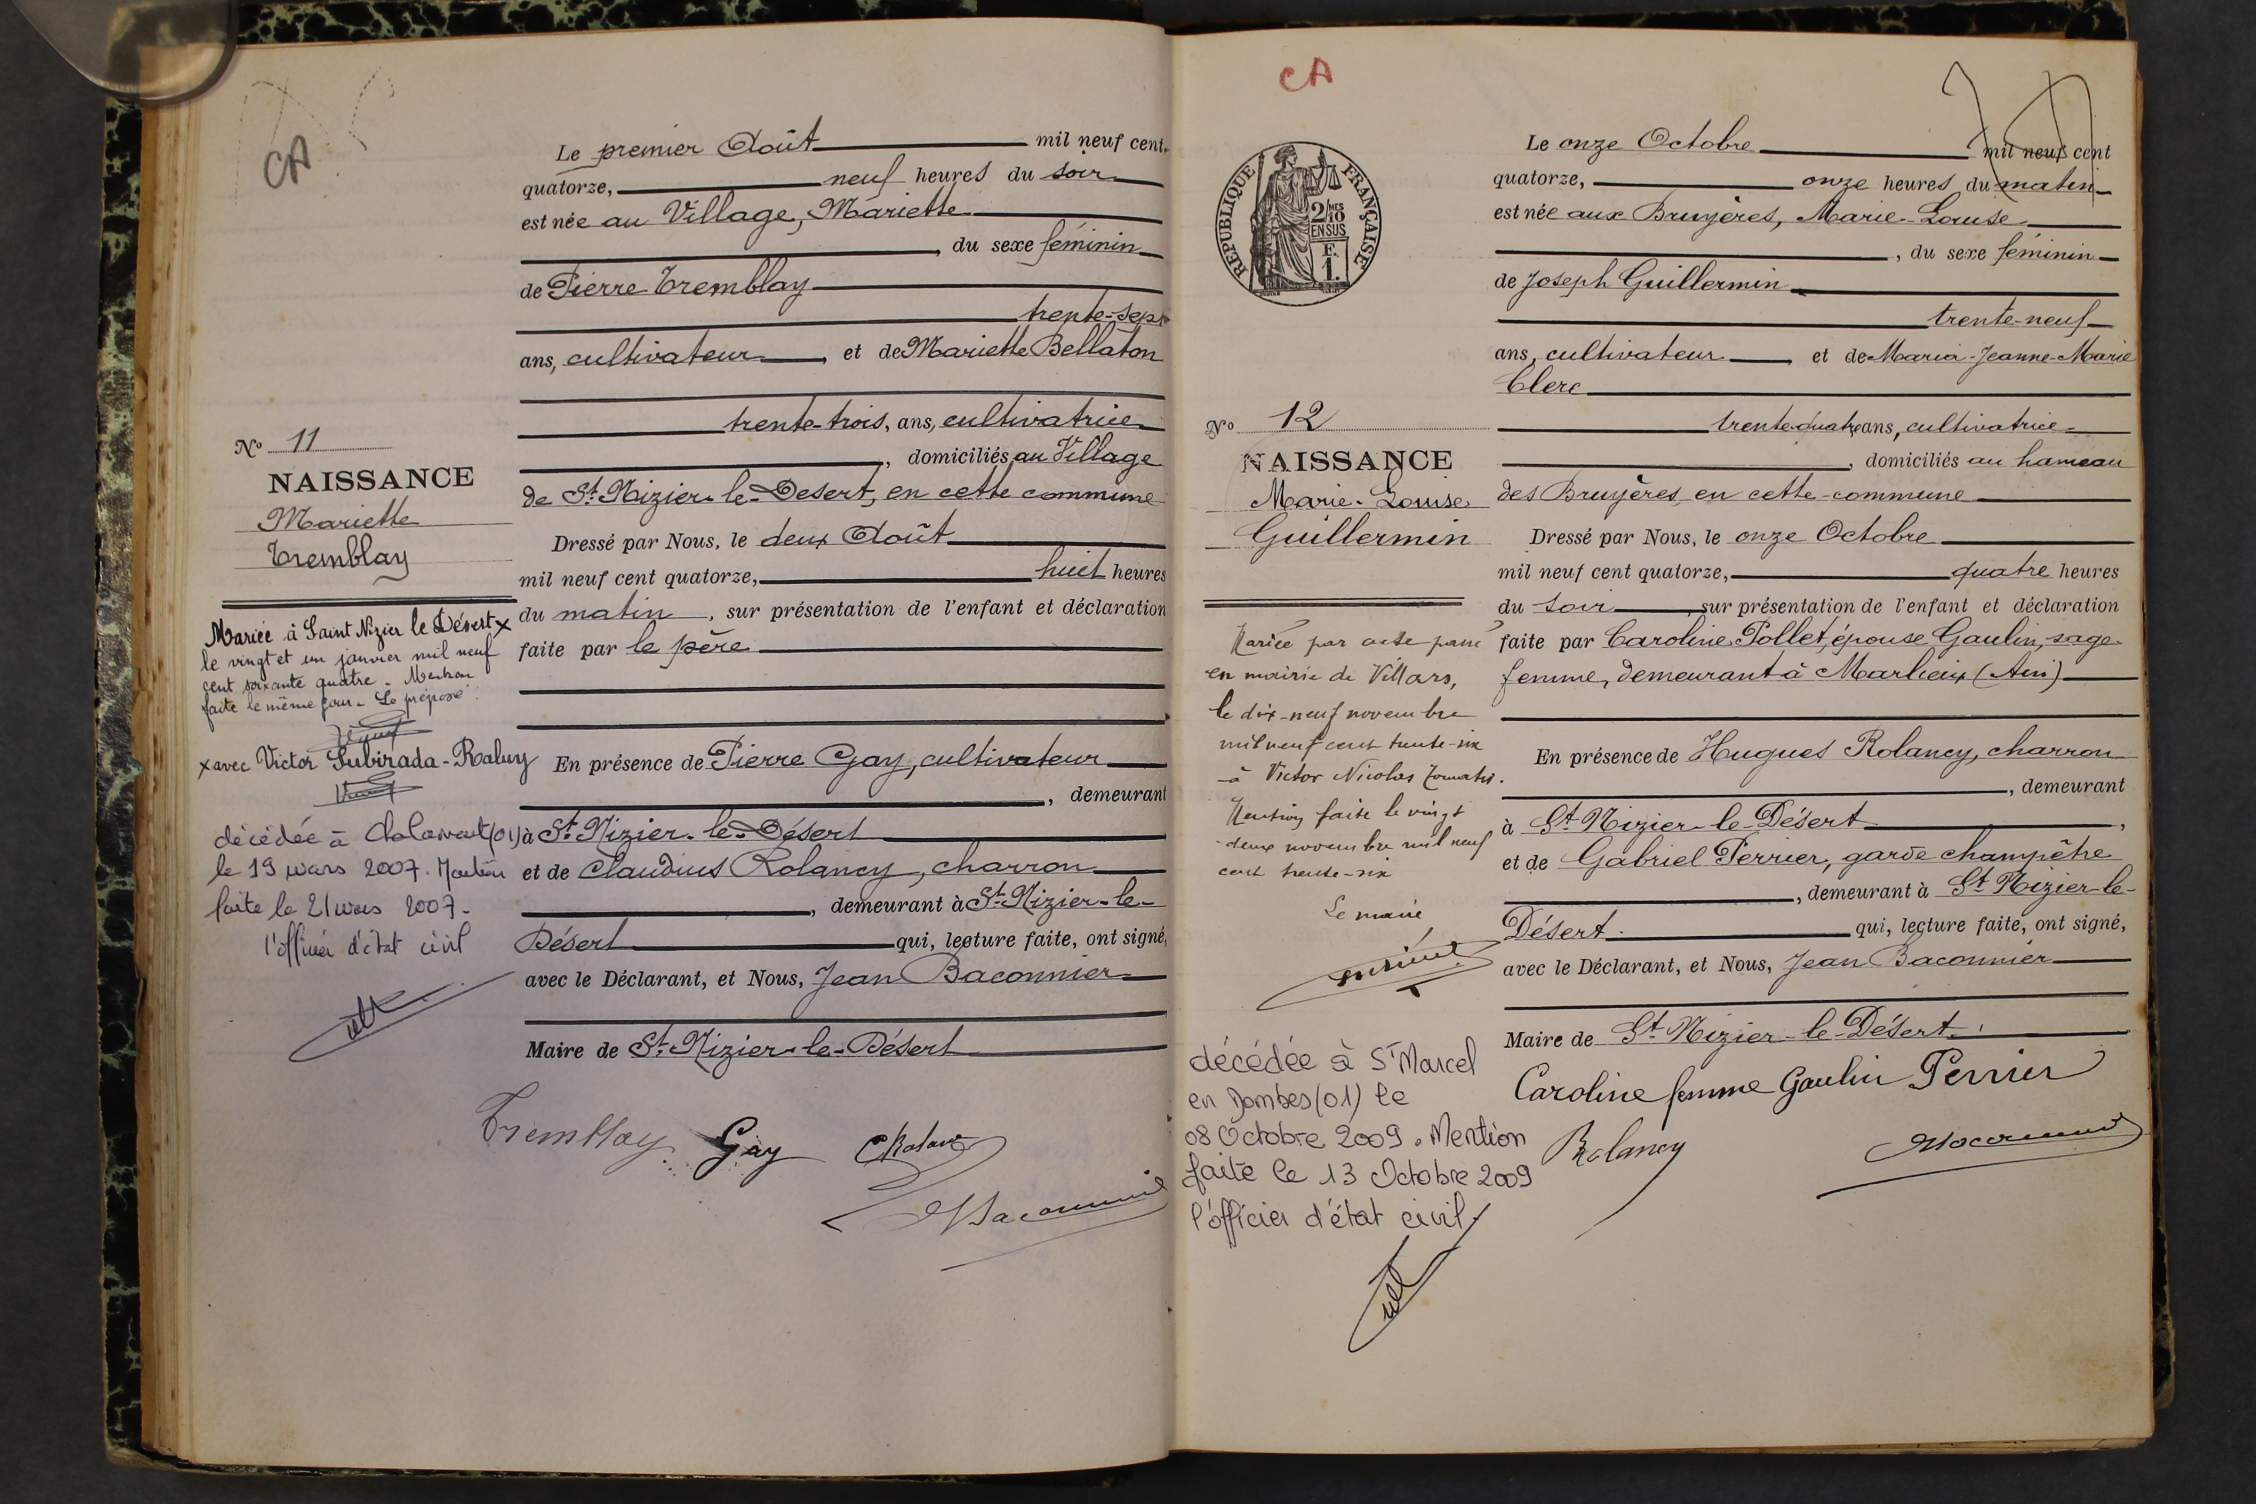 CA
Le premier Août mil neuf cent
quatorze, neuf heures du soir
est née au Village, Mariette
, du sexe féminin
de Pierre Tremblay
trente-sept
ans, cultivateur, et de Mariette Bellaton
trente-trois, ans, cultivatrice
, domiciliés au Village
de St. Nizier-le-Desert, en cette commune
Dressé par Nous, le deux Août
mil neuf cent quatorze, huit heures
du matin, sur présentation de l'enfant et déclaration
faite par le père
En présence de Pierre Gay, cultivateur
, demeurant
à St. Nizier-le-Désert
et de Claudius Rolancy, charron
, demeurant à St. Nizier-le-
Désert qui, lecture faite, ont signé,
avec le Déclarant, et Nous, Jean Baconnier
Maire de St. Nizier-le-Désert
Tremblay Gay
No 11
NAISSANCE
Mariette
Tremblay
Mariée à Saint Nizier le Désert x
le vingt et un janvier mil neuf
cent soixante quatre. Mention
faite le même jour. Le préposé
x avec Victor Subirada-Raluy
décédée à Chalamont (01)
le 19 mars 2007. Mention
faite le 21 mars 2007.
l'officier d'état civil
CA
RÉPUBLIQUE FRANÇAISE
2/10 MES
EN SUS
F.
1.
Le onze Octobre mil neuf cent
quatorze, onze heures du matin
est née aux Bruyères, Marie-Louise
, du sexe féminin
de Joseph Guillermin
trente-neuf
ans, cultivateur, et de Maria-Jeanne-Marie
Clerc
trente-quatre ans, cultivatrice
, domiciliés au hameau
des Bruyères, en cette commune
Dressé par Nous, le onze Octobre
mil neuf cent quatorze, quatre heures
du soir, sur présentation de l'enfant et déclaration
faite par Caroline Pollet, épouse Gaulin, sage-
femme, demeurant à Marlieux (Ain)
En présence de Hugues Rolancy, charron
, demeurant
à St. Nizier-le-Désert,
et de Gabriel Perrier, garde champêtre
, demeurant à St. Nizier-le-
Désert qui, lecture faite, ont signé,
avec le Déclarant, et Nous, Jean Baconnier
Maire de St. Nizier-le-Désert.
Caroline femme Gaulin Perrier
Rolancy
No 12
NAISSANCE
Marie-Louise
Guillermin
Mariée par acte passé
en mairie de Villars,
le dix-neuf novembre
mil neuf cent trente-six
à Victor Nicolas
Mention faite le vingt
deux novembre mil neuf
cent trente-six
Le maire
décédée à St Marcel
en Dombes (01) le
08 Octobre 2009. Mention
faite le 13 Octobre 2009
l'officier d'état civil